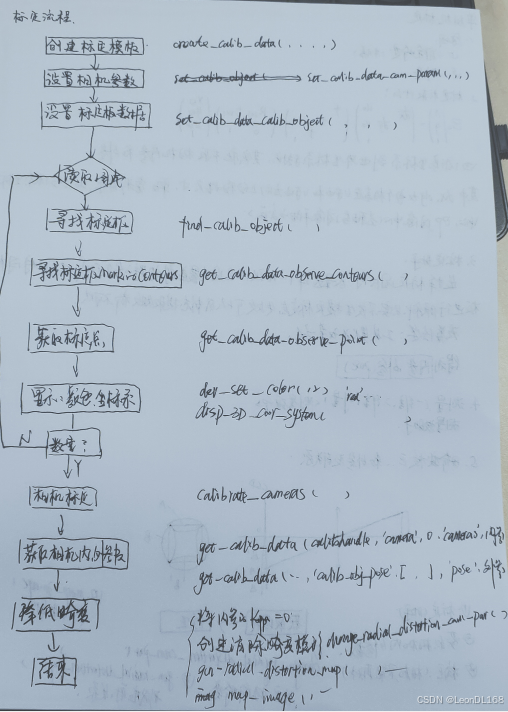 标定流程.
创建标定模板 create_calib_data( , , , , )
设置相机参数 set_calib_object( set_calib_data_cam_param( , , , )
设置标定板数据 set_calib_data_calib_object( , , )
读取图片
寻找标定板 find_calib_object( , )
寻找标定板Mark的Contours get_calib_data_observe_contours( , )
获取标定点 get_calib_data_observe_point( , )
显示 坐标系 dev_set_color( 'red'
disp_3D_coor_system( )
N 数量?
Y
相机标定 calibrate_cameras( )
获取相机内外参数 get_calib_data(calibdatahandle,'camera',0,'camera',内参)
get_calib_data( ,'calib_obj_pose',[ , ],'pose',外参)
降低畸变 将内参的Kappa=0
创建消除畸变模板 change_radial_distortion_cam_par( )
gen_radial_distortion_map( , , —
结束 map_image( , , —
CSDN @LeonDL168